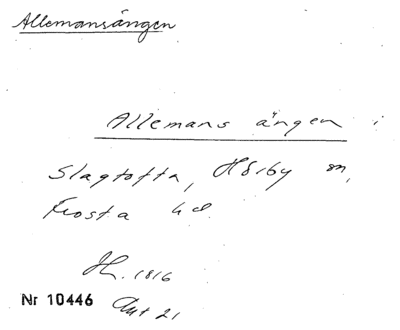 Allemansängen
Allemans ängen i
Slagtofta, Hörby sn,
Frosta hd
1816
Nr 10446
Akt 21